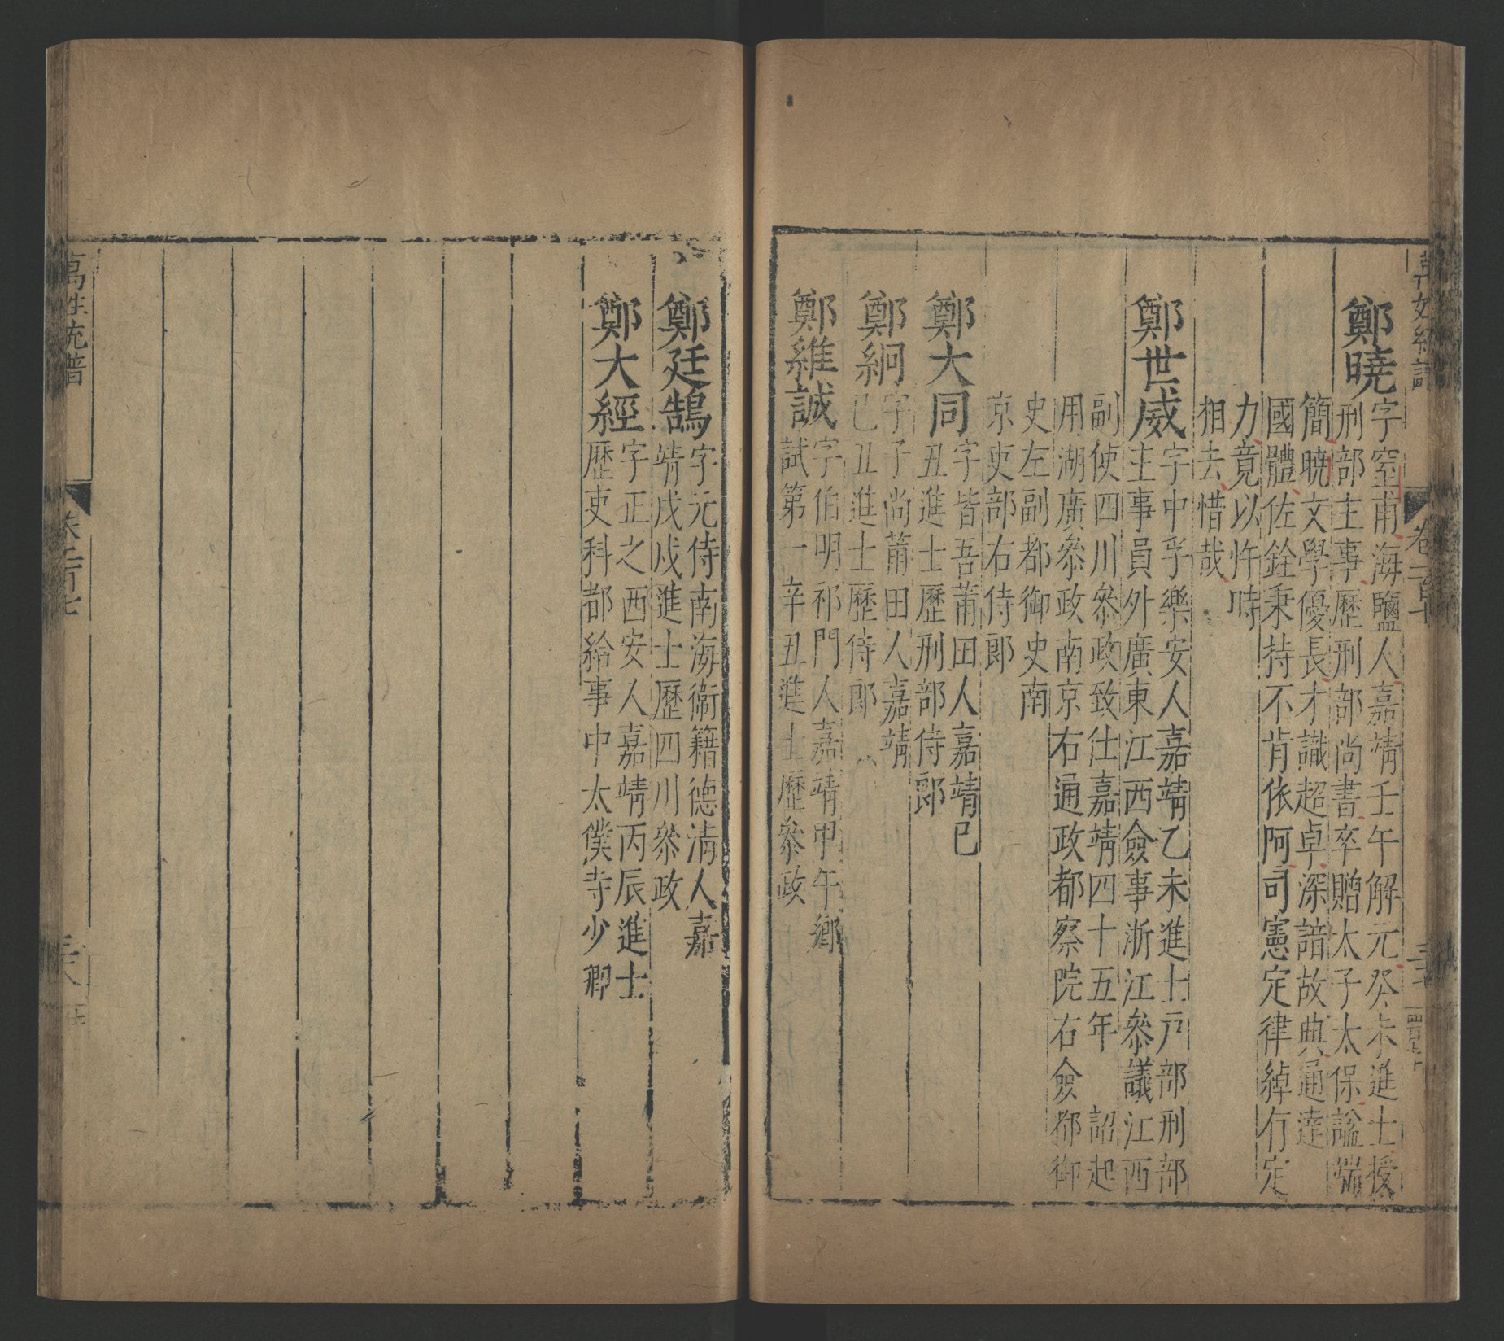 鄭曉
字窒甫海鹽人嘉靖壬午解元癸未進士授
刑部主事歷刑部尚書卒贈太子太保謚端
簡曉文學優長才識超卓深諳故典通達
國體佐銓秉持不肯依阿司憲定律綽有定
力竟以忤時
相去惜哉
鄭世威
字中孚樂安人嘉靖乙未進士戶部刑部
主事員外廣東江西僉事浙江叅議江西
副使四川叅政致仕嘉靖四十五年 詔起
用湖廣叅政南京右通政都察院右僉都御
史左副都御史南
京吏部右侍郎
鄭大同
字皆吾莆田人嘉靖己
丑進士歷刑部侍郎
鄭絅
字子尚莆田人嘉靖
己丑進士歷侍郎
鄭維誠
字伯明祁門人嘉靖甲午鄉
試第一辛丑進士歷叅政
鄭廷鵠
字元侍南海衛籍德清人嘉
靖戊戌進士歷四川叅政
鄭大經
字正之西安人嘉靖丙辰進士
歷吏科都給事中太僕寺少卿
萬姓統譜